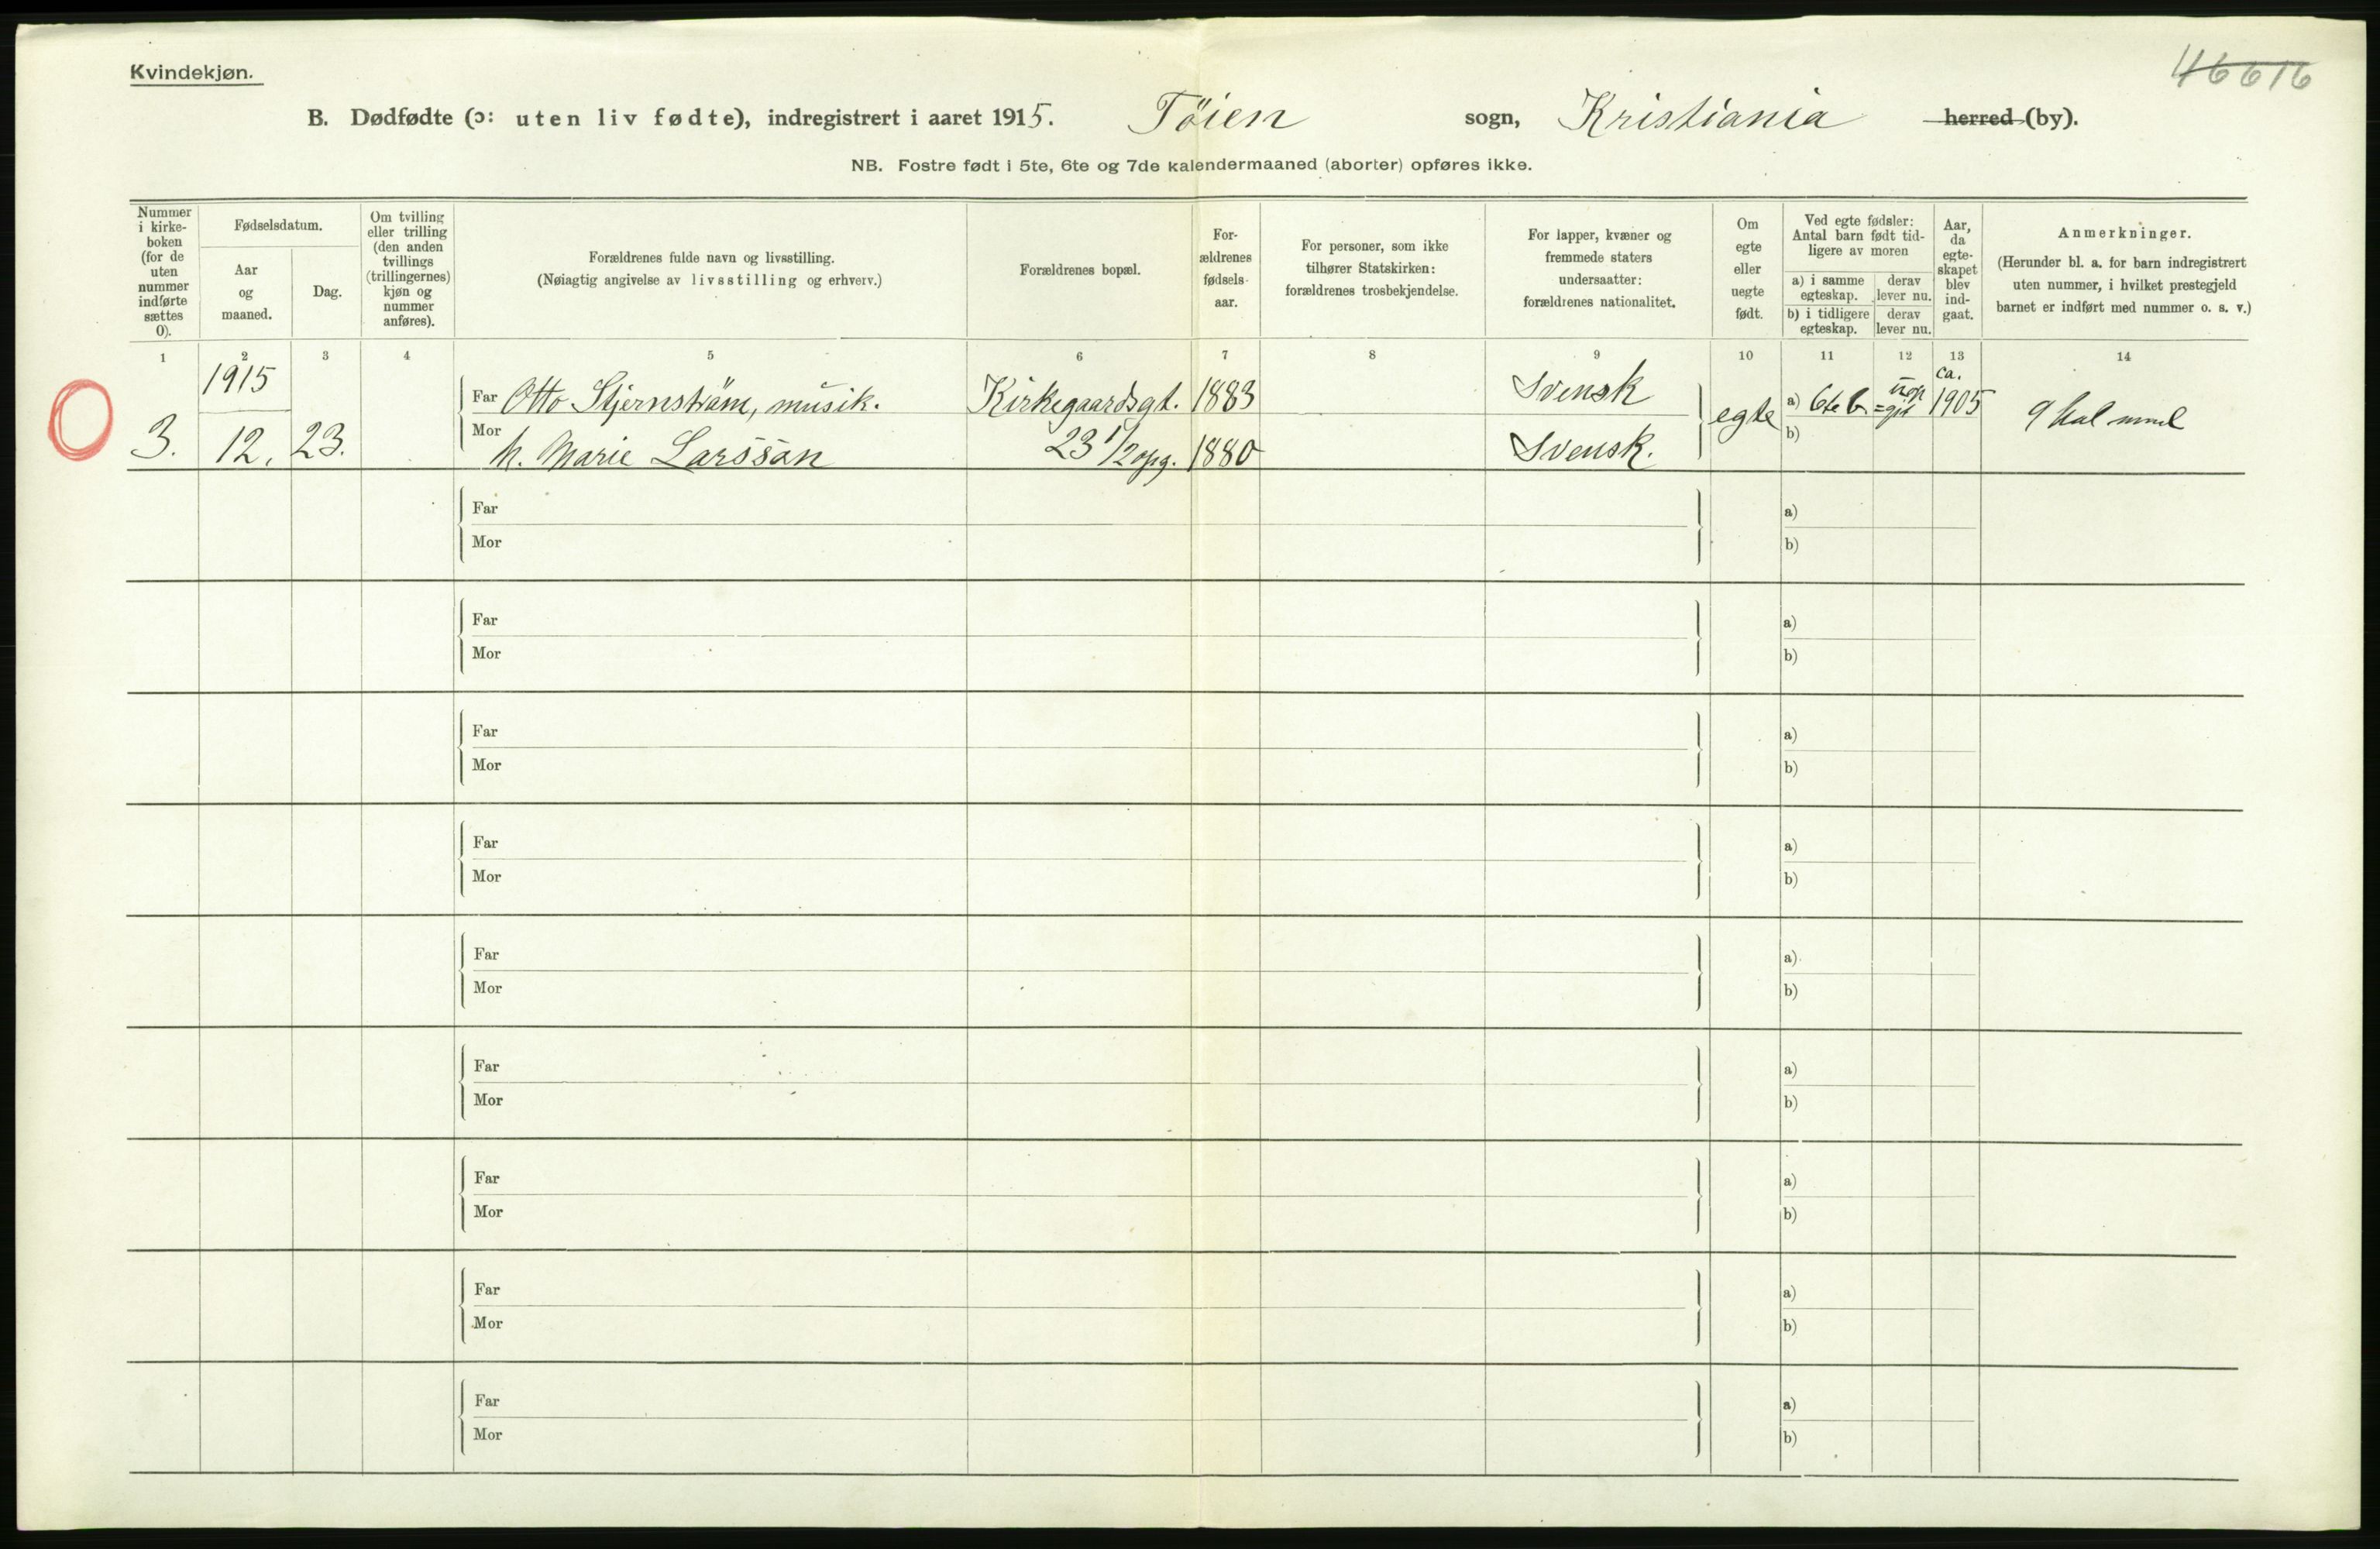 Kvindekjøn.
46616
B. Dødfødte (ɔ: uten liv fødte), indregistrert i aaret 1915. Töien sogn, Kristiania herred (by).
NB. Fostre født i 5te, 6te og 7de kalendermaaned (aborter) opføres ikke.
Nummer
i kirke-
boken
(for de
uten
nummer
indførte
sættes
0).
Fødselsdatum.
Aar
og
maaned.
Dag.
Om tvilling
eller trilling
(den anden
tvillings
(trillingernes)
kjøn og
nummer
anføres).
Forældrenes fulde navn og livsstilling.
(Nøiagtig angivelse av livsstilling og erhverv.)
Forældrenes bopæl.
For-
ældrenes
fødsels-
aar.
For personer, som ikke
tilhører Statskirken:
forældrenes trosbekjendelse.
For lapper, kvæner og
fremmede staters
undersaatter:
forældrenes nationalitet.
Om
egte
eller
uegte
født.
Ved egte fødsler:
Antal barn født tid-
ligere av moren
a) i samme
egteskap.
derav
lever nu.
b) i tidligere
egteskap.
derav
lever nu.
Aar,
da
egte-
skapet
blev
ind-
gaat.
Anmerkninger.
(Herunder bl. a. for barn indregistrert
uten nummer, i hvilket prestegjeld
barnet er indført med nummer o. s. v.)
1 2 3 4 5 6 7 8 9 10 11 12 13 14
1915 ca.
Far Otto Stjernström, musik. Kirkegaardsgt. 1883 Svensk a) 6te 1905
3. 12. 23. egte 9
Mor h. Marie Larsson 23 1/2 opg. 1880 Svensk. b)
Far a)
Mor b)
Far a)
Mor b)
Far a)
Mor b)
Far a)
Mor b)
Far a)
Mor b)
Far a)
Mor b)
Far a)
Mor b)
Far a)
Mor b)
Far a)
Mor b)